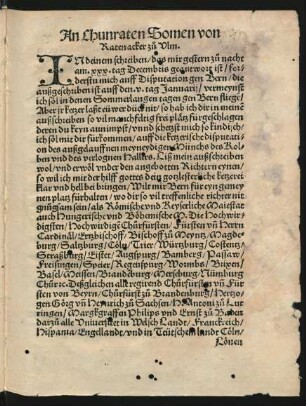 An Chunraten Somen von
Ratenacker zů Vlm.
IN deinem schreiben / das mir gestern zů nacht
am .xxx. tag Decembris geantwort ist / for/
derstu mich auff Disputation gen Bern / die
außgeschriben ist auff den .v. tag Januarij / vermeynst
ich sol in denen Sommerlangen tagen gen Bern fliegē /
Aber ir ketzer last ewer nit / so hab ich dir in meinē
außschreiben so vil manchfaltig frey plätz fürgeschlagen
deren du keyn annimpst / vnd schetzst mich so kindisch /
ich sol mir dir fürkommen / auff die ketzerische disputati
on des außgelauffnen meyneydigen Münchs des Kol
ben vnd des verlognen Hallers. Liß mein außschreiben
wol / vnd erwöl vnder den angebotten Richtern eynen /
so wil ich mit der hilff gottes dein gotzlesterliche ketzerey
klar vnd hell bringen / Wilt mir Bern für eyn gmeynen
platz fürhalten / wo dir so vil treffenliche richter nit
gnůgsam sein / als Römische vnd Keyserliche Maiestat
auch Hungerische vnd Böhemische M. Die Hochwir
digsten / Hochwirdige Churfürsten / Fürsten vñ Herrn
Cardinäl / Ertzbischoff / Bischoff zů Meyntz / Magdē
burg / Saltzburg / Cöln / Trier / Würtzburg / Costentz /
Straßburg / Eistet / Augspurg / Bamberg / Passaw /
Freisingen / Speier / Regenspurg / Wormbs / Brixen /
Basel / Meissen / Brandenburg / Mersburg / Nůmburg
Chür ꝛc. Deßgleichen all regierend Churfürstē vñ Für
sten von Beyrn / Churfürst zů Brandenburg / Hertzo
gen Görg vñ Heinrich zů Sachsen / H. Anthoni zů Lut
ringen / Marggraffen Philips vnd Ernst zů Baden
dartzů alle Vniuersitet in Welsch Landt / Franckreich /
Hispania / Engellandt / vnd in Teütschem landt Cöln /
Löuen